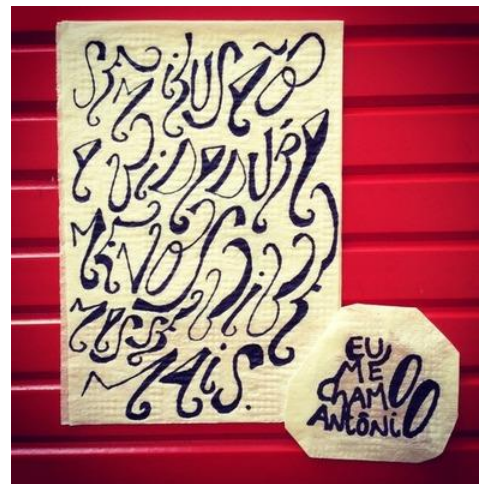 SEM ILUSÃO
A VIDA DURA
MENOS
MAIS.
EU
ME
CHAMO
ANTÔNIO